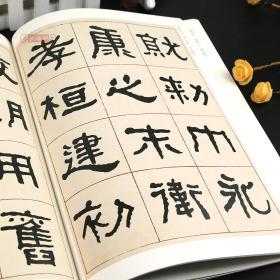 就勑巾永
康之末衛
孝桓建初
政朝用舊